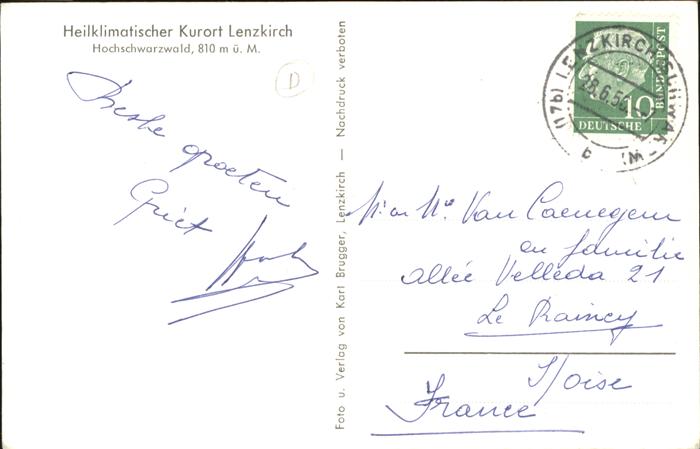 Heilklimatischer Kurort Lenzkirch
Hochschwarzwald, 810 m ü. M.
D
Beste groeten
Griet
Foto u. Verlag von Karl Brugger, Lenzkirch — Nachdruck verboten
(17b) LENZKIRCH (SCHWARZW)
28.6.56
b
10
BUNDESPOST
DEUTSCHE
Mr en Me Van Caenegem
en familie
Allée Velleda 21
Le Raincy
S/oise
France